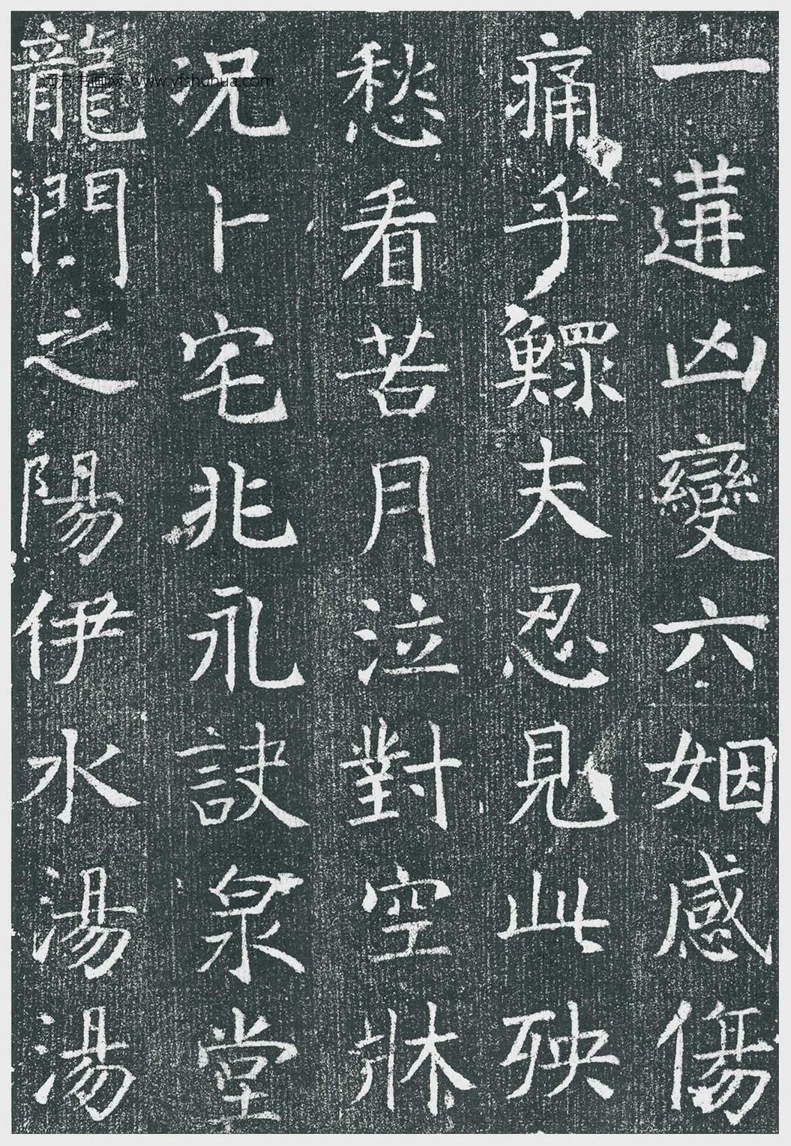 一遘凶變六姻感傷
痛乎鰥夫忍見此殃
愁看苦月泣對空牀
況卜宅兆永訣泉堂
龍門之陽伊水湯湯
www.yfshuhua.com